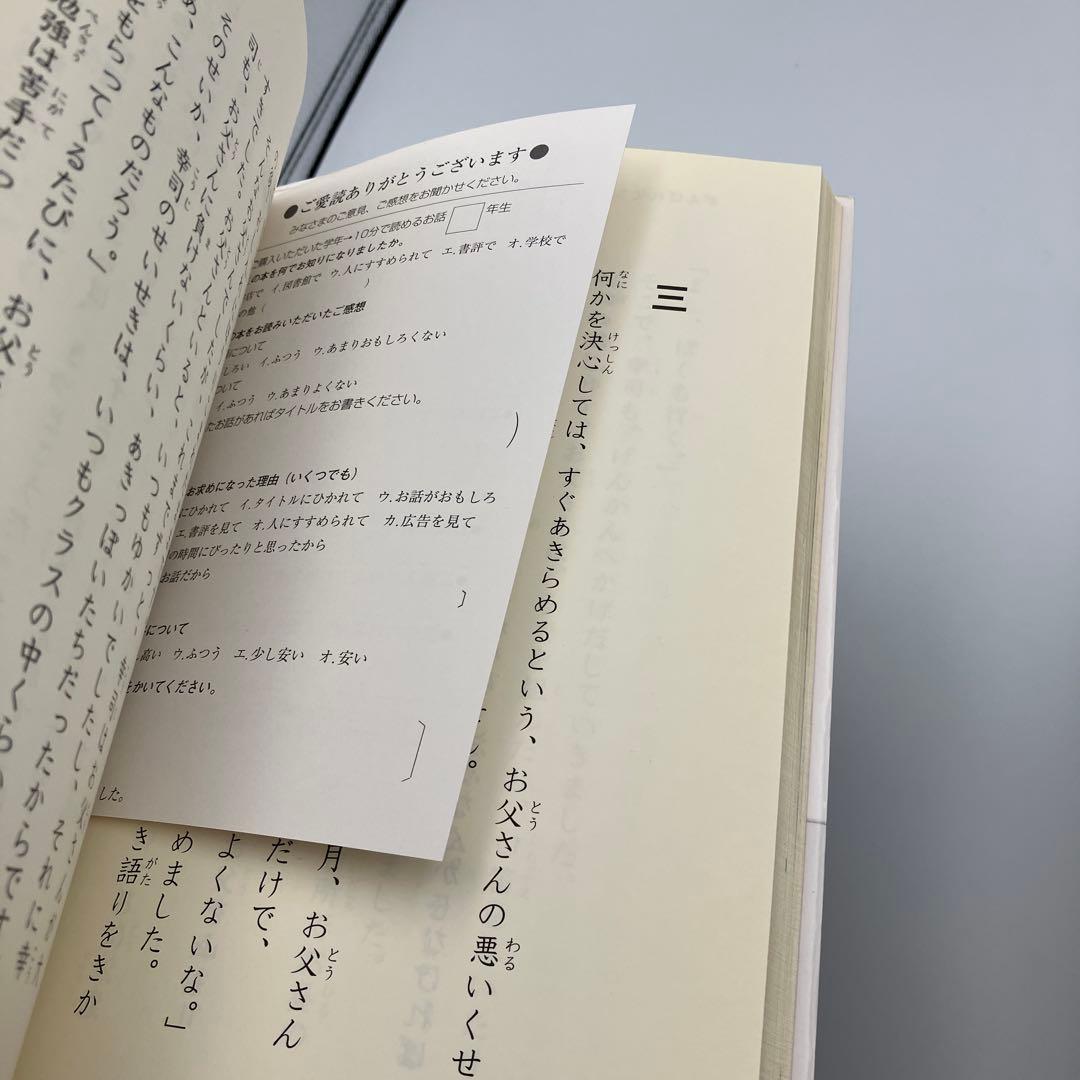 三
何かを決心しては、すぐあきらめるという、お父さんの悪いくせ
月、お父さん
だけで、
よくないな。」
めました。
き語りをきか
●ご愛読ありがとうございます●
みなさまのご意見、ご感想をお聞かせください。
ご購入いただいた学年→10分で読めるお話 年生
の本を何でお知りになりましたか。
店で イ.図書館で ウ.人にすすめられて エ.書評で オ.学校で
の他( )
の本をお読みいただいたご感想
について
しろい イ.ふつう ウ.あまりおもしろくない
ついて
イ.ふつう ウ.あまりよくない
たお話があればタイトルをお書きください。
)
お求めになった理由(いくつでも)
にひかれて イ.タイトルにひかれて ウ.お話がおもしろ
エ.書評を見て オ.人にすすめられて カ.広告を見て
の時間にぴったりと思ったから
お話だから
]
について
高い ウ.ふつう エ.少し安い オ.安い
をかいてください。
]
した。
司も、お父さんに負けないくらい、いつもゆかいでしたし、
そのせいか、幸司のせいせきは、いつもクラスの中くらい
め、こんなものだろう。」
をもらってくるたびに、お父
勉強は苦手だっ
あきっぽいたちだったからです